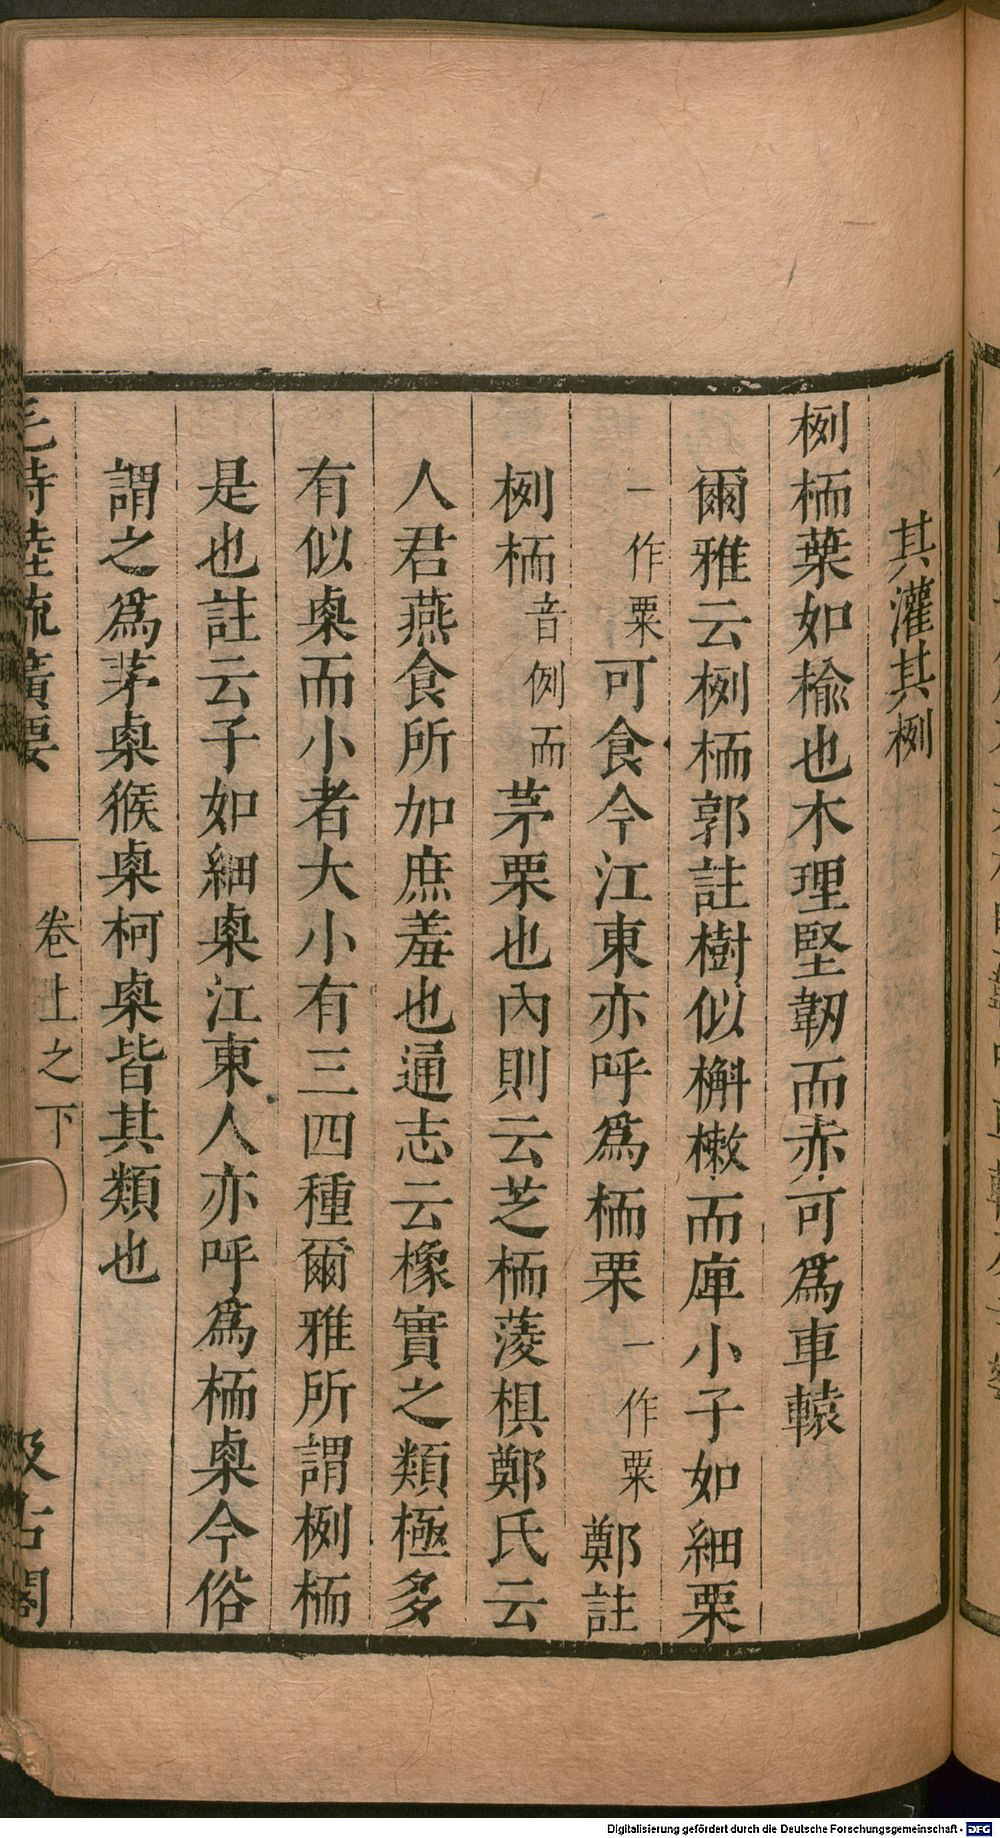 其灌其栵
栵栭葉如榆也木理堅韌而赤可爲車轅
爾雅云栵栭郭註樹似槲樕而庳小子如細栗
一作粟可食今江東亦呼爲栭栗一作粟鄭註
栵栭音例而茅栗也內則云芝栭蔆椇鄭氏云
人君燕食所加庶羞也通志云橡實之類極多
有似㮚而小者大小有三四種爾雅所謂栵栭
是也註云子如細㮚江東人亦呼爲栭㮚今俗
謂之爲茅㮚猴㮚柯㮚皆其類也
毛詩陸疏廣要
卷上之下
汲古閣
Digitalisierung gefördert durch die Deutsche Forschungsgemeinschaft - DFG